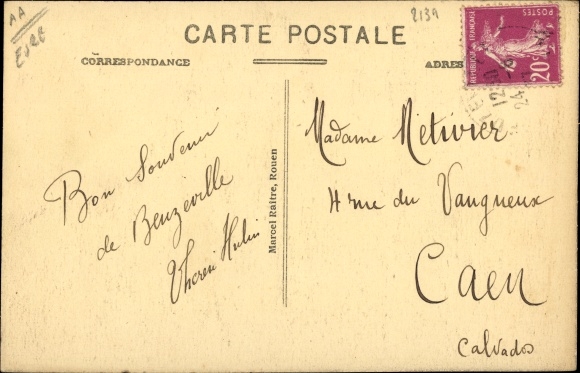 AA
Eure
2139
CARTE POSTALE
CORRESPONDANCE
ADRES
POSTES
REPUBLIQUE FRANÇAISE
20c
Bon Souvenir
de Beuzeville
Hulin
Marcel Raitre, Rouen
Madame Métivier
4 rue du Vaugueux
Caen
Calvados